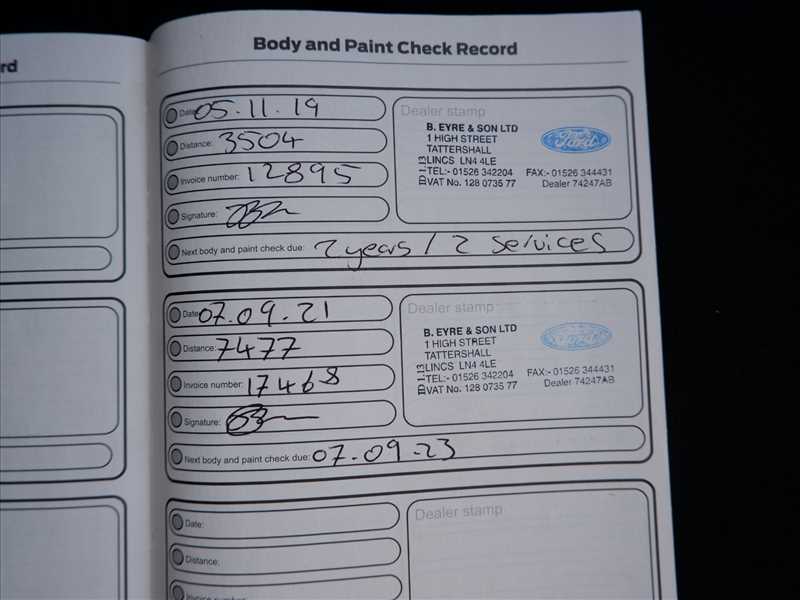 rd
Body and Paint Check Record
Date: 05.11.19
Distance: 3504
Invoice number: 12895
Signature:
Next body and paint check due: 2 years / 2 services
Dealer stamp
B. EYRE & SON LTD
1 HIGH STREET
TATTERSHALL
LINCS LN4 4LE
TEL:- 01526 342204 FAX:- 01526 344431
VAT No. 128 0735 77 Dealer 74247AB
Ford
Date: 07.09.21
Distance: 7477
Invoice number: 17468
Signature:
Next body and paint check due: 07.09.23
Dealer stamp
B. EYRE & SON LTD
1 HIGH STREET
TATTERSHALL
LINCS LN4 4LE
TEL:- 01526 342204 FAX:- 01526 344431
VAT No. 128 0735 77 Dealer 74247AB
Ford
Date:
Distance:
Invoice number:
Dealer stamp